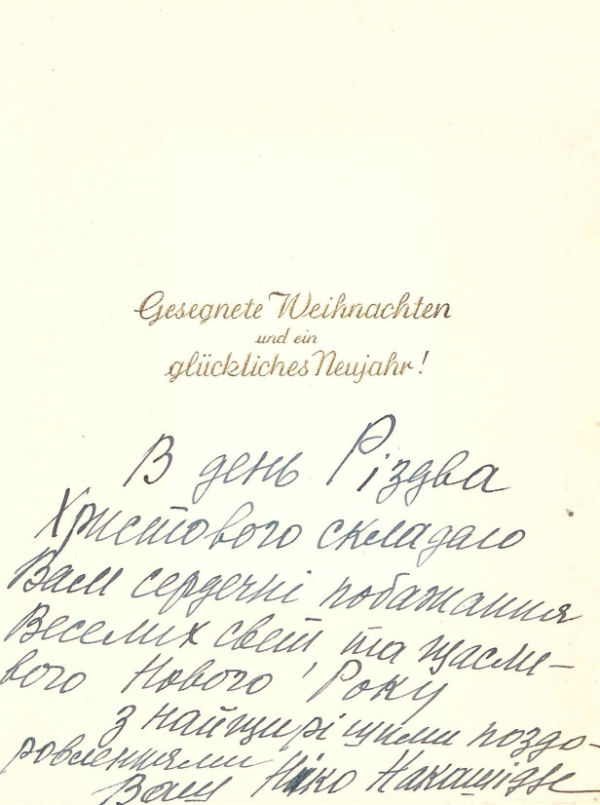 Gesegnete Weihnachten
und ein
glückliches Neujahr!
В день Різдва
Христового складаю
Вам сердечні побажання
Веселих свят та щасли-
вого Нового Року
З найщирішими поздо-
ровленнями
Ваш Ніко Накашідзе